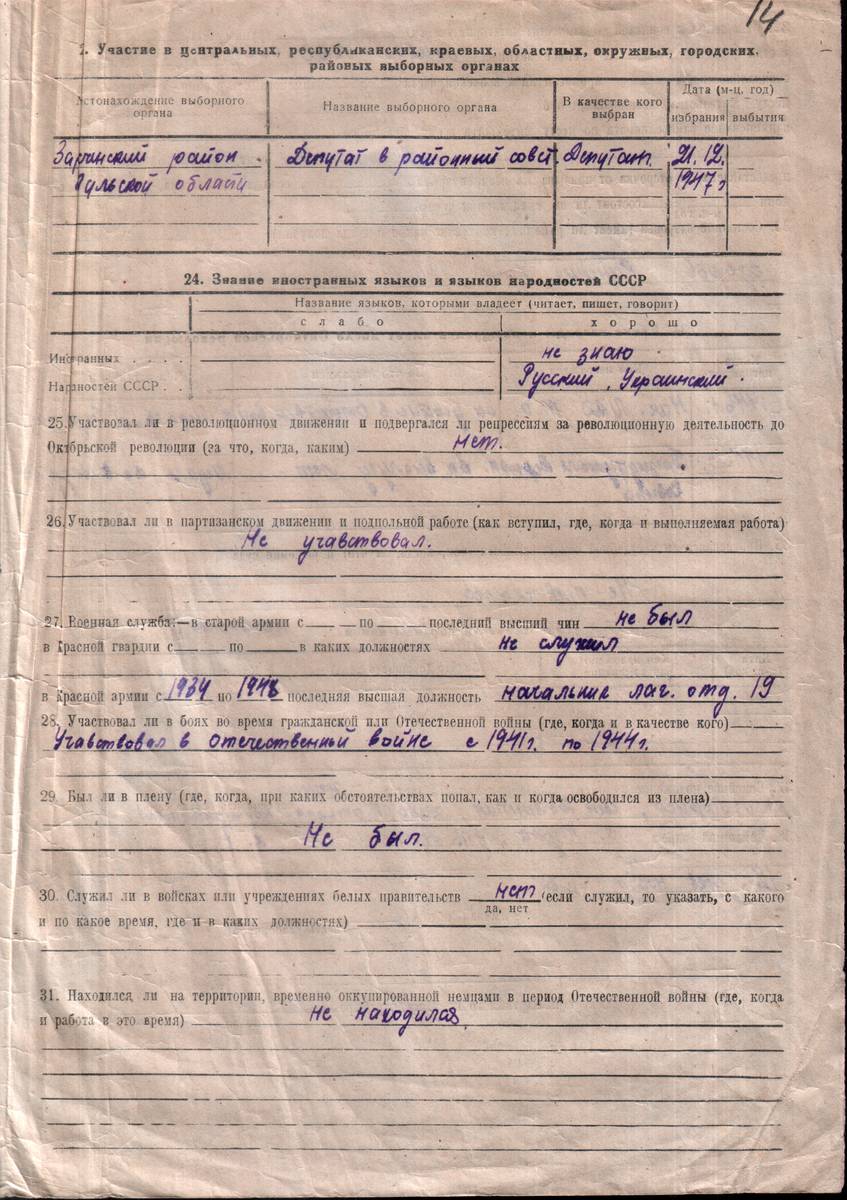 14
Участие в центральных, республиканских, краевых, областных, окружных, городских,
районых выборных органах
Дата (м-ц, год)
Название выборного органа
В качестве кого
выбран
избрания
выбытия
естонахождение выборного
органа
район
Депутат в районный совет.
Депутат.
21.12.
ульской области
1947 г
24. Знание иностранных языков и языков народностей СССР
Название языков, которыми владеет (читает, пишет, говорит)
слабо
хорошо
Иностранных . . . .
не знаю
Народностей СССР . .
Русский, Украинский.
25. Участвовал ли в революционном движении и подвергался ли репрессиям за революционную деятельность до
Октябрьской революции (за что, когда, каким) нет.
26. Участвовал ли в партизанском движении и подпольной работе (как вступил, где, когда и выполняемая работа)
Не учавствовал.
27. Военная служба:—в старой армии с по последний высший чин не был
в Красной гвардии с по в каких должностях не служил
в Красной армии с 1934 по 1948 последняя высшая должность начальник лаг. отд. 19
28. Участвовал ли в боях во время гражданской или Отечественной войны (где, когда и в качестве кого)
Учавствовал в отечественный войне с 1941 г. по 1944 г.
29. Был ли в плену (где, когда, при каких обстоятельствах попал, как и когда освободился из плена)
Не был.
30. Служил ли в войсках или учреждениях белых правительств нет (если служил, то указать, с какого
да, нет
и по какое время, где и в каких должностях)
31. Находился ли на территории, временно оккупированной немцами в период Отечественной войны (где, когда
и работа в это время) не находился.